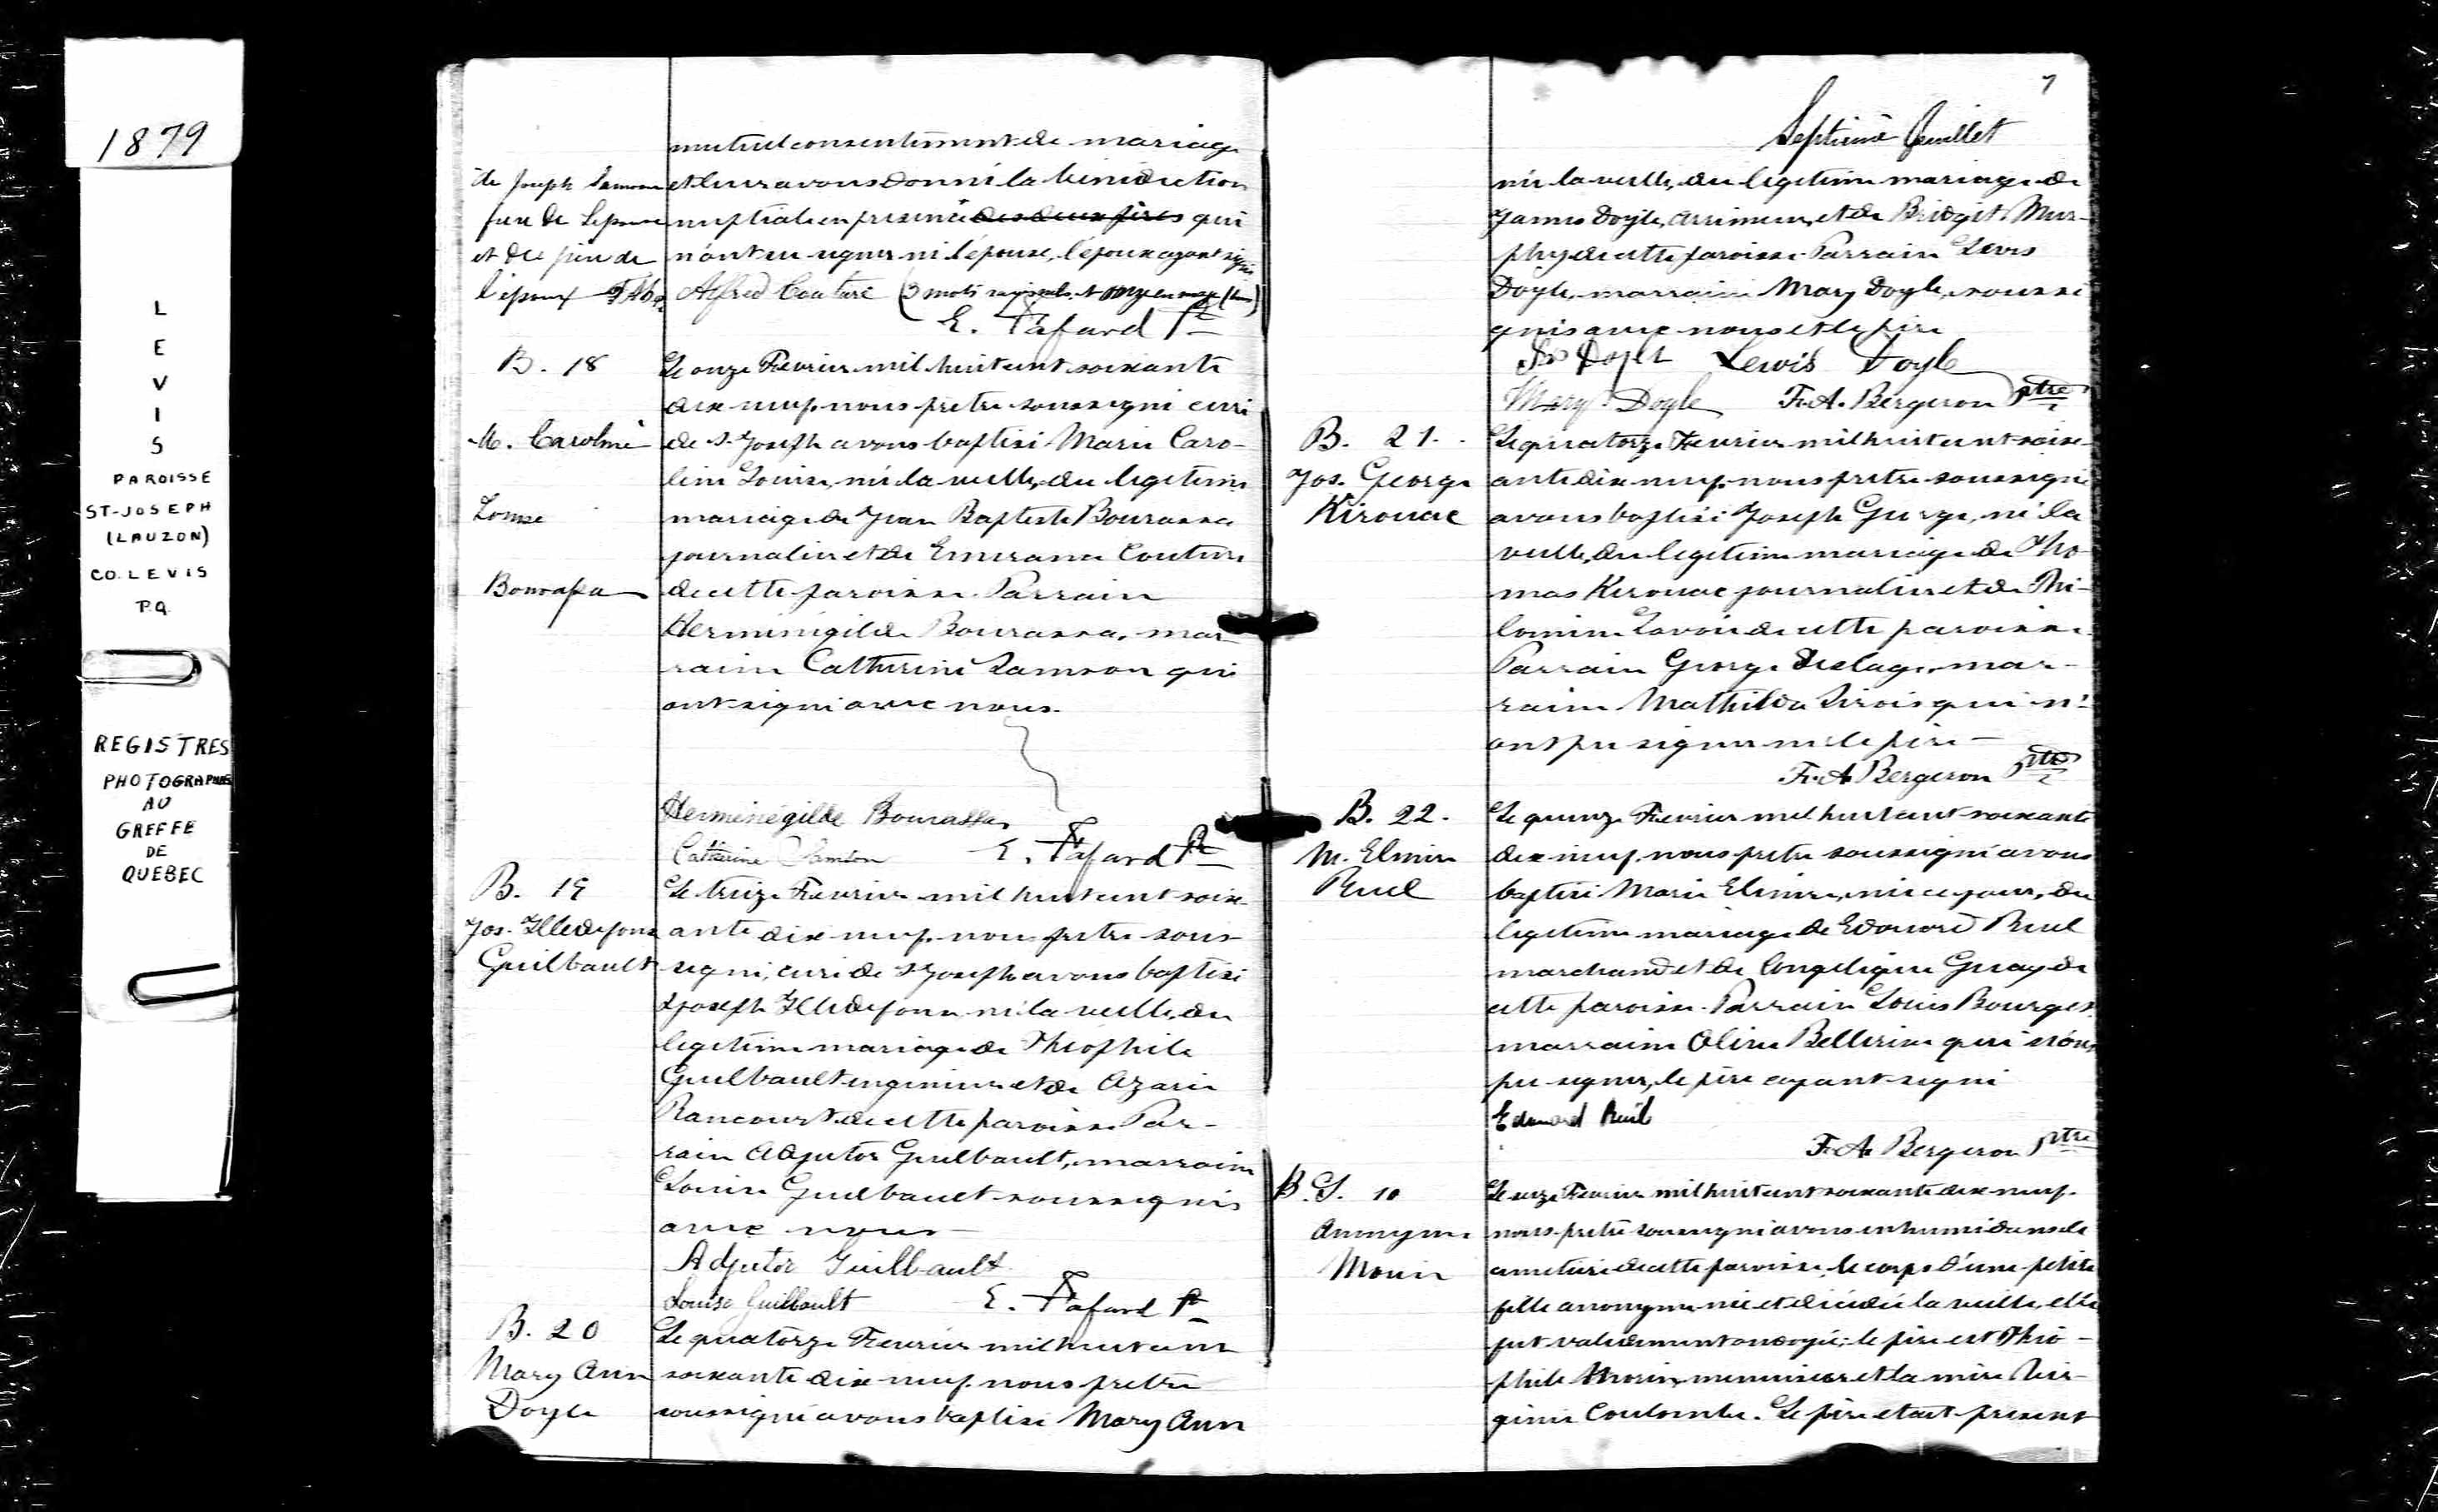 1879
L
E
V
I
S
PAROISSE
ST-JOSEPH
(LAUZON)
CO. LEVIS
P.Q.
REGISTRES
PHOTOGRAPHIES
AU
GREFFE
DE
QUEBEC
mutuel consentement de mariage
et leur avons donné la bénédiction
nuptiale en présence des deux pères qui
n'ont su signer ni l'épouse, l'époux ayant signé
Alfred Couture (3 mots rayés nuls et onze en marge (bons)
E. Fafard Ptre
de Joseph Samson
père de l'épouse
et du père de
l'époux
B. 18
M. Caroline
Louise
Bourassa
Le onze Fevrier mil huit cent soixante
dix neuf nous pretre soussigné curé
de S. Joseph avons baptisé Marie Caro-
line Louise, née la veille, du legitime
mariage de Jean Baptiste Bourassa
journalier et de Emerance Couture
de cette paroisse. Parrain
Herménégilde Bourassa, mar
raine Catherine Samson qui
ont signé avec nous.
Herménégilde Bourassa
Catherine Samson E. Fafard Ptre
B. 19
Jos. Illedefonse
Guilbault
Le treize Fevrier mil huit cent soix-
ante dix neuf nous pretre sous-
signé, curé de S Joseph avons baptisé
Joseph Illedefonse né la veille du
legitime mariage de Théophile
Guilbault ingenieur et de Azarie
Rancourt de cette paroisse Par-
rain Adjutor Guilbault, marraine
Louise Guilbault soussignés
avec nous
Adjutor Guilbault
Louise Guilbault E. Fafard Ptre
B. 20
Mary Ann
Doyle
Le quatorze Fevrier mil huit cent
soixante dix neuf nous pretre
soussigné avons baptisé Mary Ann
7
Septième feuillet
née la veille, du legitime mariage de
James Doyle, arrimeur, et de Bridget Mur-
phy de cette paroisse. Parrain Lewis
Doyle, marraine Mary Doyle, soussi
gnés avec nous et le père
Lewis Doyle
Mary Doyle F. A. Bergeron Ptre
B. 21.
Jos. George
Kirouac
Le quatorze Fevrier mil huit cent soix-
ante dix neuf nous pretre soussigné
avons baptisé Joseph George, né la
veille, du legitime mariage de Tho-
mas Kerouac journalier et de Phi-
lomène Lavoie de cette paroisse.
Parrain George Delage, mar-
raine Mathilda Sirois qui n'
ont pu signer ni le père
F. A. Bergeron Ptre
B. 22.
M. Elmire
Ruel
Le quinze Fevrier mil huit cent soixante
dix neuf nous pretre soussigné avons
baptisé Marie Elmire, née ce jour, du
legitime mariage de Edouard Ruel
marchand et de Angelique Guay de
cette paroisse. Parrain Louis Bourget
marraine Olive Bellerive qui n'ont
pu signer, le père ayant signé
Edouard Ruel
F. A. Bergeron Ptre
B. S. 10
Anonyme
Morin
Le seize Fevrier mil huit cent soixante dix neuf
nous pretre soussigné avons inhumé dans le
cimetière de cette paroisse le corps d'une petite
fille anonyme née et décédée la veille, elle
fut validement ondoyée: le père est Théo-
phile Morin, menuisier et la mère Vir-
ginie Coulombe. Le père etait present